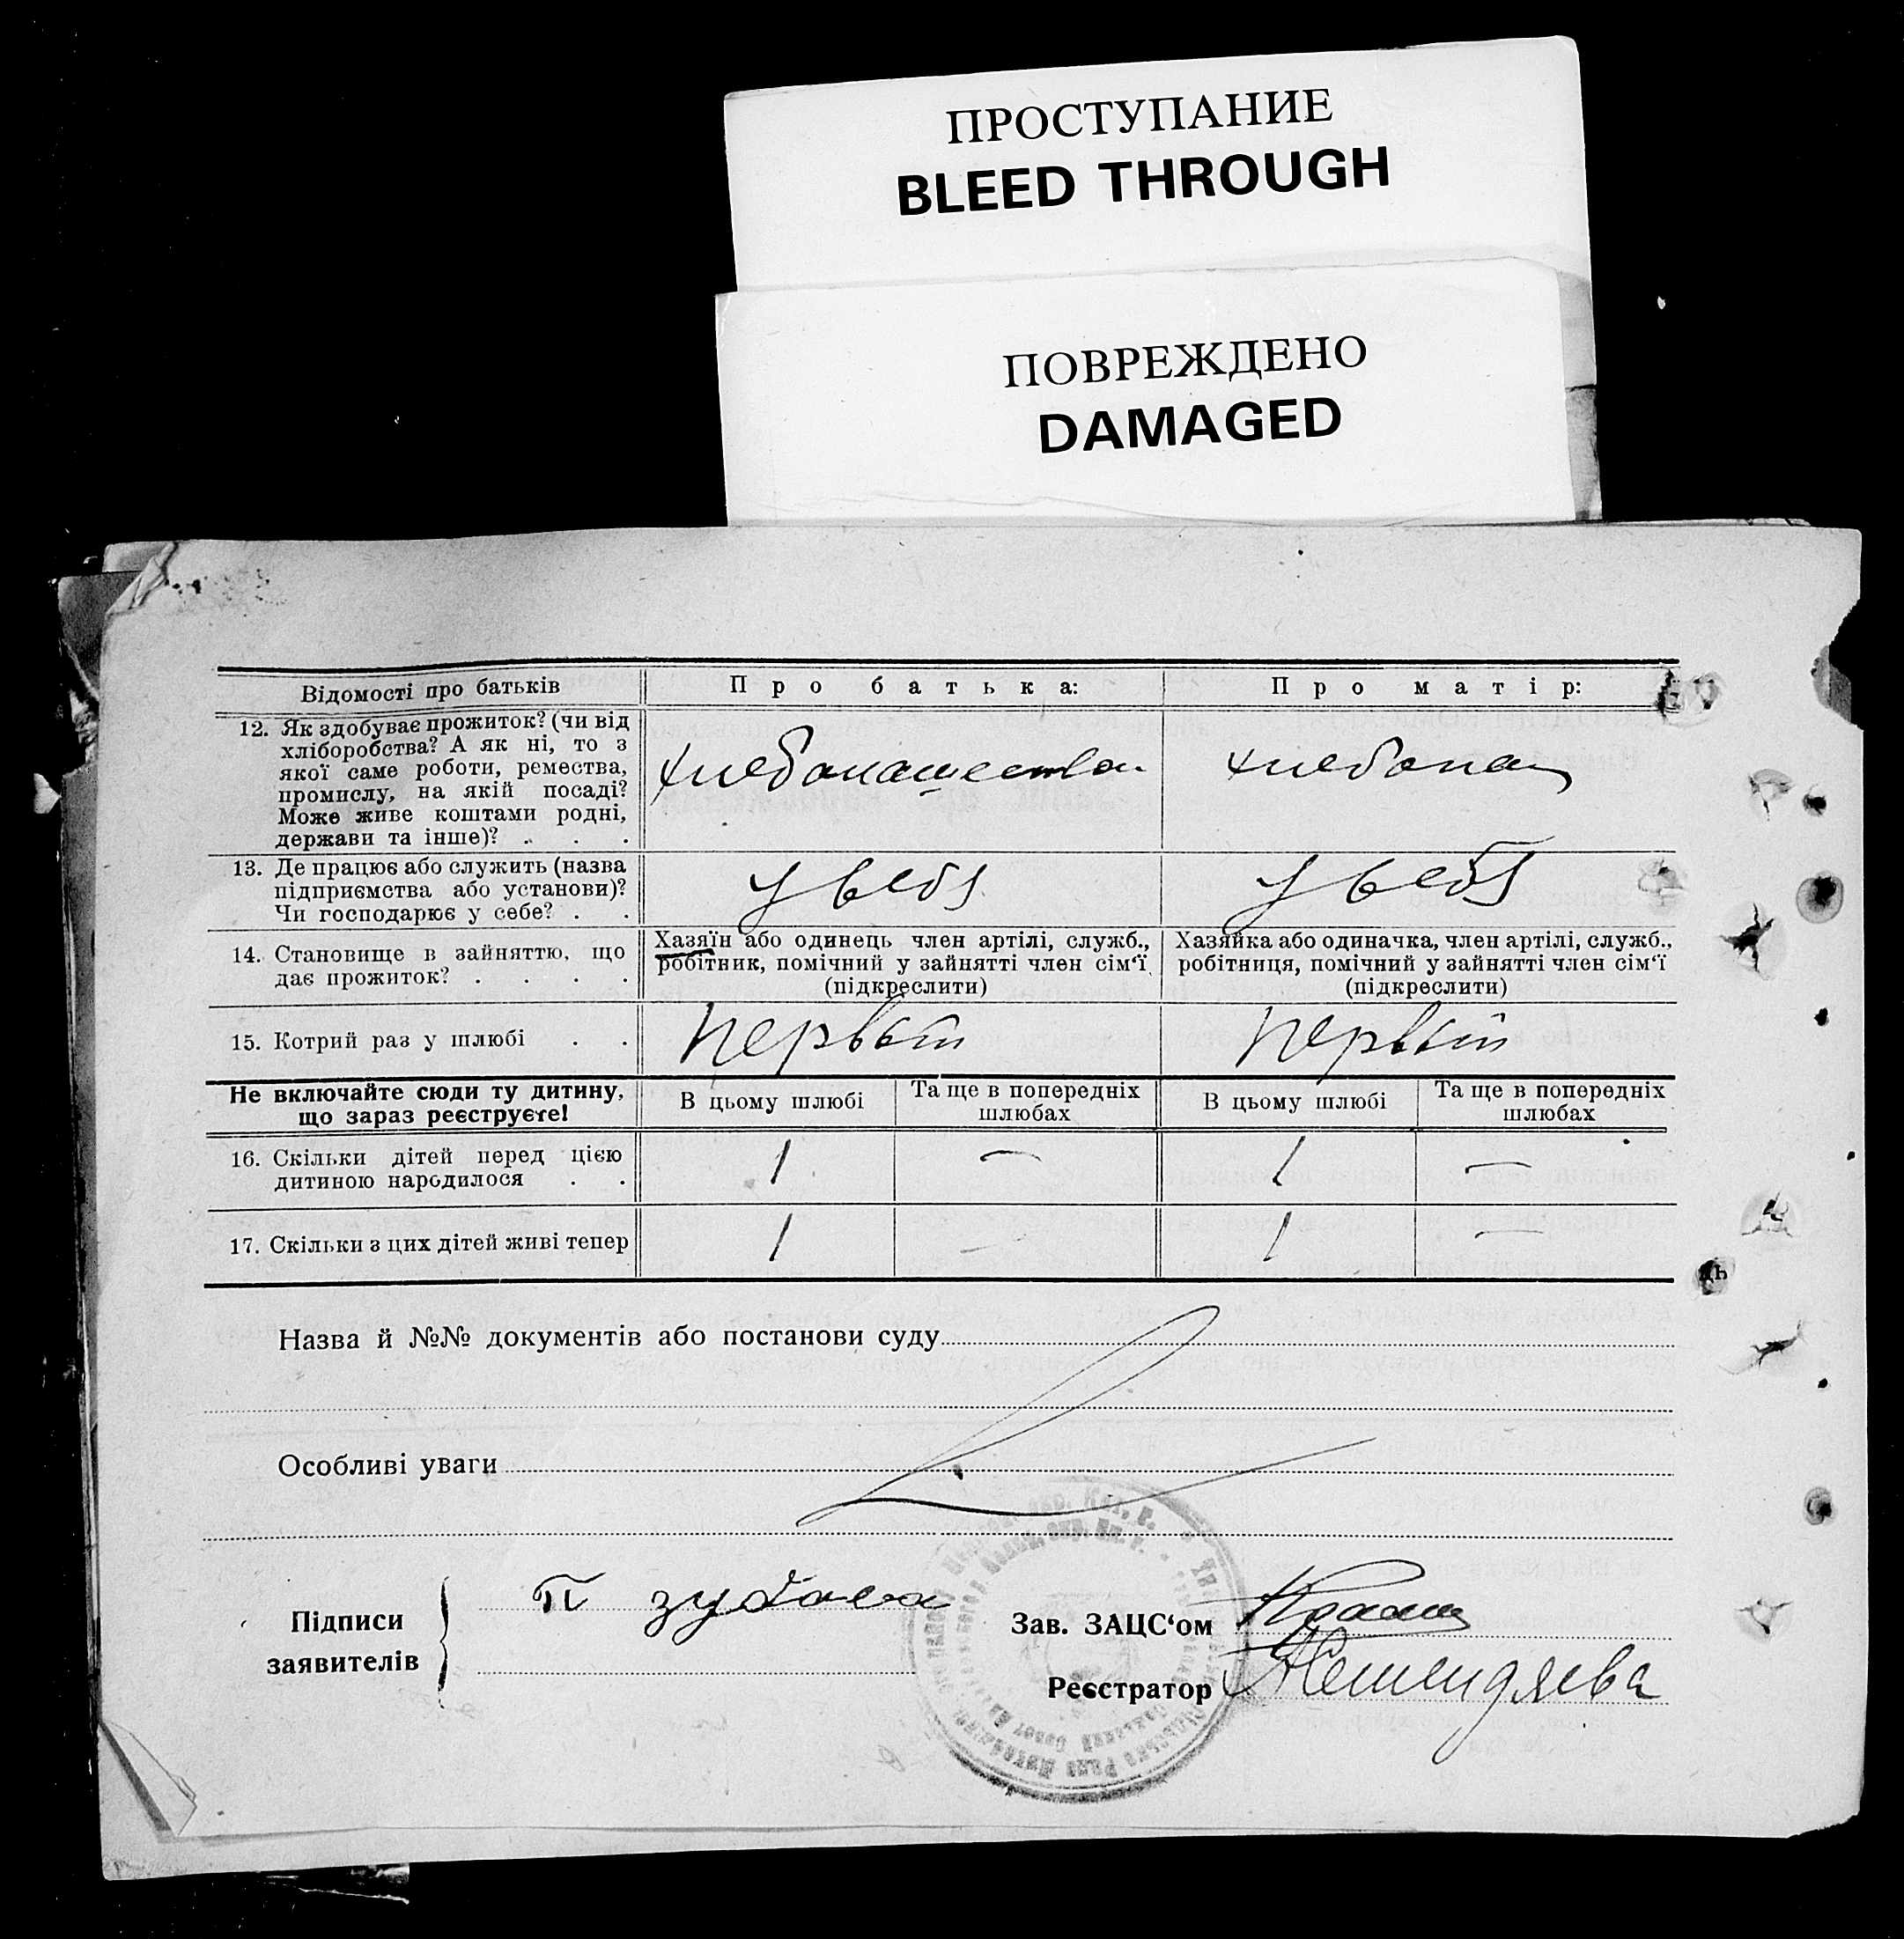 ПРОСТУПАНИЕ
BLEED THROUGH
ПОВРЕЖДЕНО
DAMAGED
Відомості про батьків
Про батька:
Про матір:
12. Як здобуває прожиток? (чи від
хліборобства? А як ні, то з
якої саме роботи, ремества,
промислу, на якій посаді?
Може живе коштами родні,
держави та інше)? . . .
хлебопашество
хлебопаш
13. Де працює або служить (назва
підприємства або установи)?
Чи господарює у себе? . .
у себя
у себя
14. Становище в зайняттю, що
дає прожиток? . . . .
Хазяїн або одинець член артілі, служб.,
робітник, помічний у зайнятті член сім‘ї
(підкреслити)
Хазяйка або одиначка, член артілі, служб.,
робітниця, помічний у зайнятті член сім‘ї
(підкреслити)
15. Котрий раз у шлюбі . .
первый
первый
Не включайте сюди ту дитину,
що зараз реєструєте!
В цьому шлюбі
Та ще в попередніх
шлюбах
В цьому шлюбі
Та ще в попередніх
шлюбах
16. Скільки дітей перед цією
дитиною народилося . .
1 — 1 —
17. Скільки з цих дітей живі тепер
1 — 1 —
Назва й №№ документів або постанови суду
Особливі уваги
Підписи
заявителів
П
Зав. ЗАЦС‘ом
Реєстратор